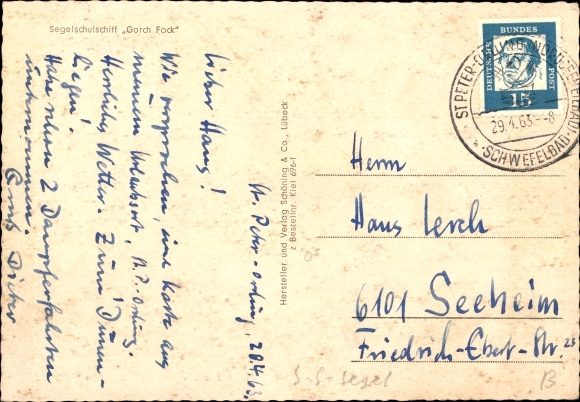 Segelschulschiff „Gorch Fock"
St. Peter-Ording, 28.4.63.
Lieber Hans!
Wie versprochen, eine Karte aus
meinem Urlaubsort, St. P.-Ording.
Herrliches Wetter. Zum Dünen-
liegen!
Habe schon 2 Dampferfahrten
unternommen.
Dieter
Hersteller und Verlag Schöning & Co., Lübeck
z Bestellnr. Kiel 696-1
DEUTSCHE BUNDES POST
15
ST. PETER-ORDING
NORDSEEHEILBAD U.
SCHWEFELBAD
29.4.63.--8
Herrn
Hans Lerch
6101 Seeheim
Friedrich-Ebert-Str. 23
S-S-Segel
B